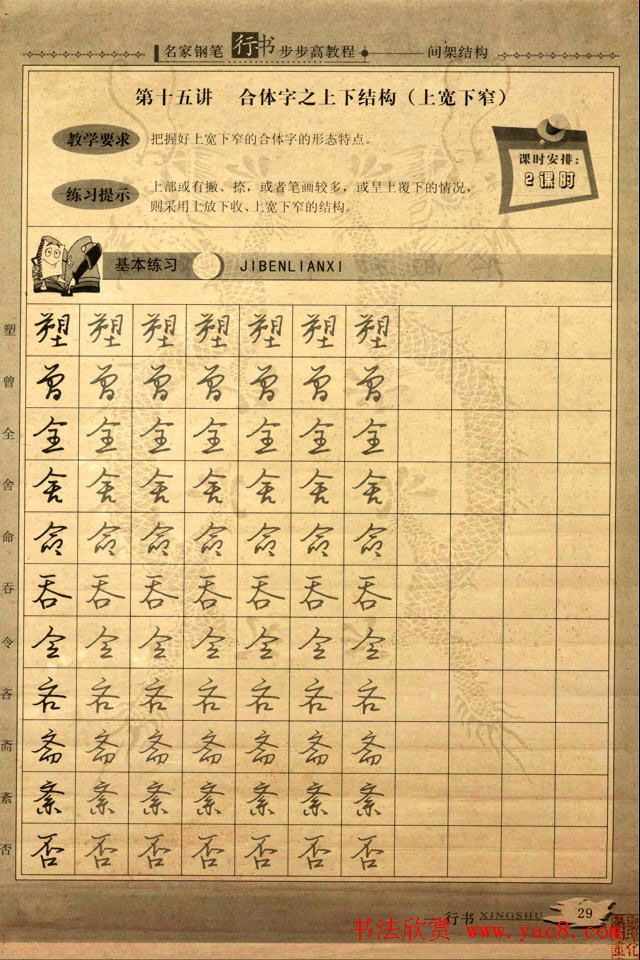 名家钢笔行书步步高教程 间架结构
第十五讲 合体字之上下结构（上宽下窄）
教学要求 把握好上宽下窄的合体字的形态特点。
课时安排：
2课时
练习提示 上部或有撇、捺，或者笔画较多，或呈上覆下的情况，
则采用上放下收、上宽下窄的结构。
基本练习 JIBENLIANXI
塑 塑 塑 塑 塑 塑 塑 塑
曾 曾 曾 曾 曾 曾 曾 曾
全 全 全 全 全 全 全 全
舍 舍 舍 舍 舍 舍 舍 舍
命 命 命 命 命 命 命 命
吞 吞 吞 吞 吞 吞 吞 吞
令 令 令 令 令 令 令 令
吝 吝 吝 吝 吝 吝 吝 吝
斋 斋 斋 斋 斋 斋 斋 斋
紊 紊 紊 紊 紊 紊 紊 紊
否 否 否 否 否 否 否 否
行书 XINGSHU 29
书法欣赏 www.yac8.com